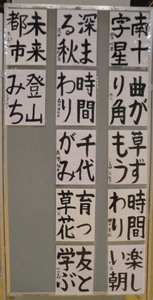 南十字星
曲がり角
草ずもう
時間わり
楽しい朝
深まる秋
時間わり
千代がみ
育つ草花
友と学ぶ
未来都市
登山みち